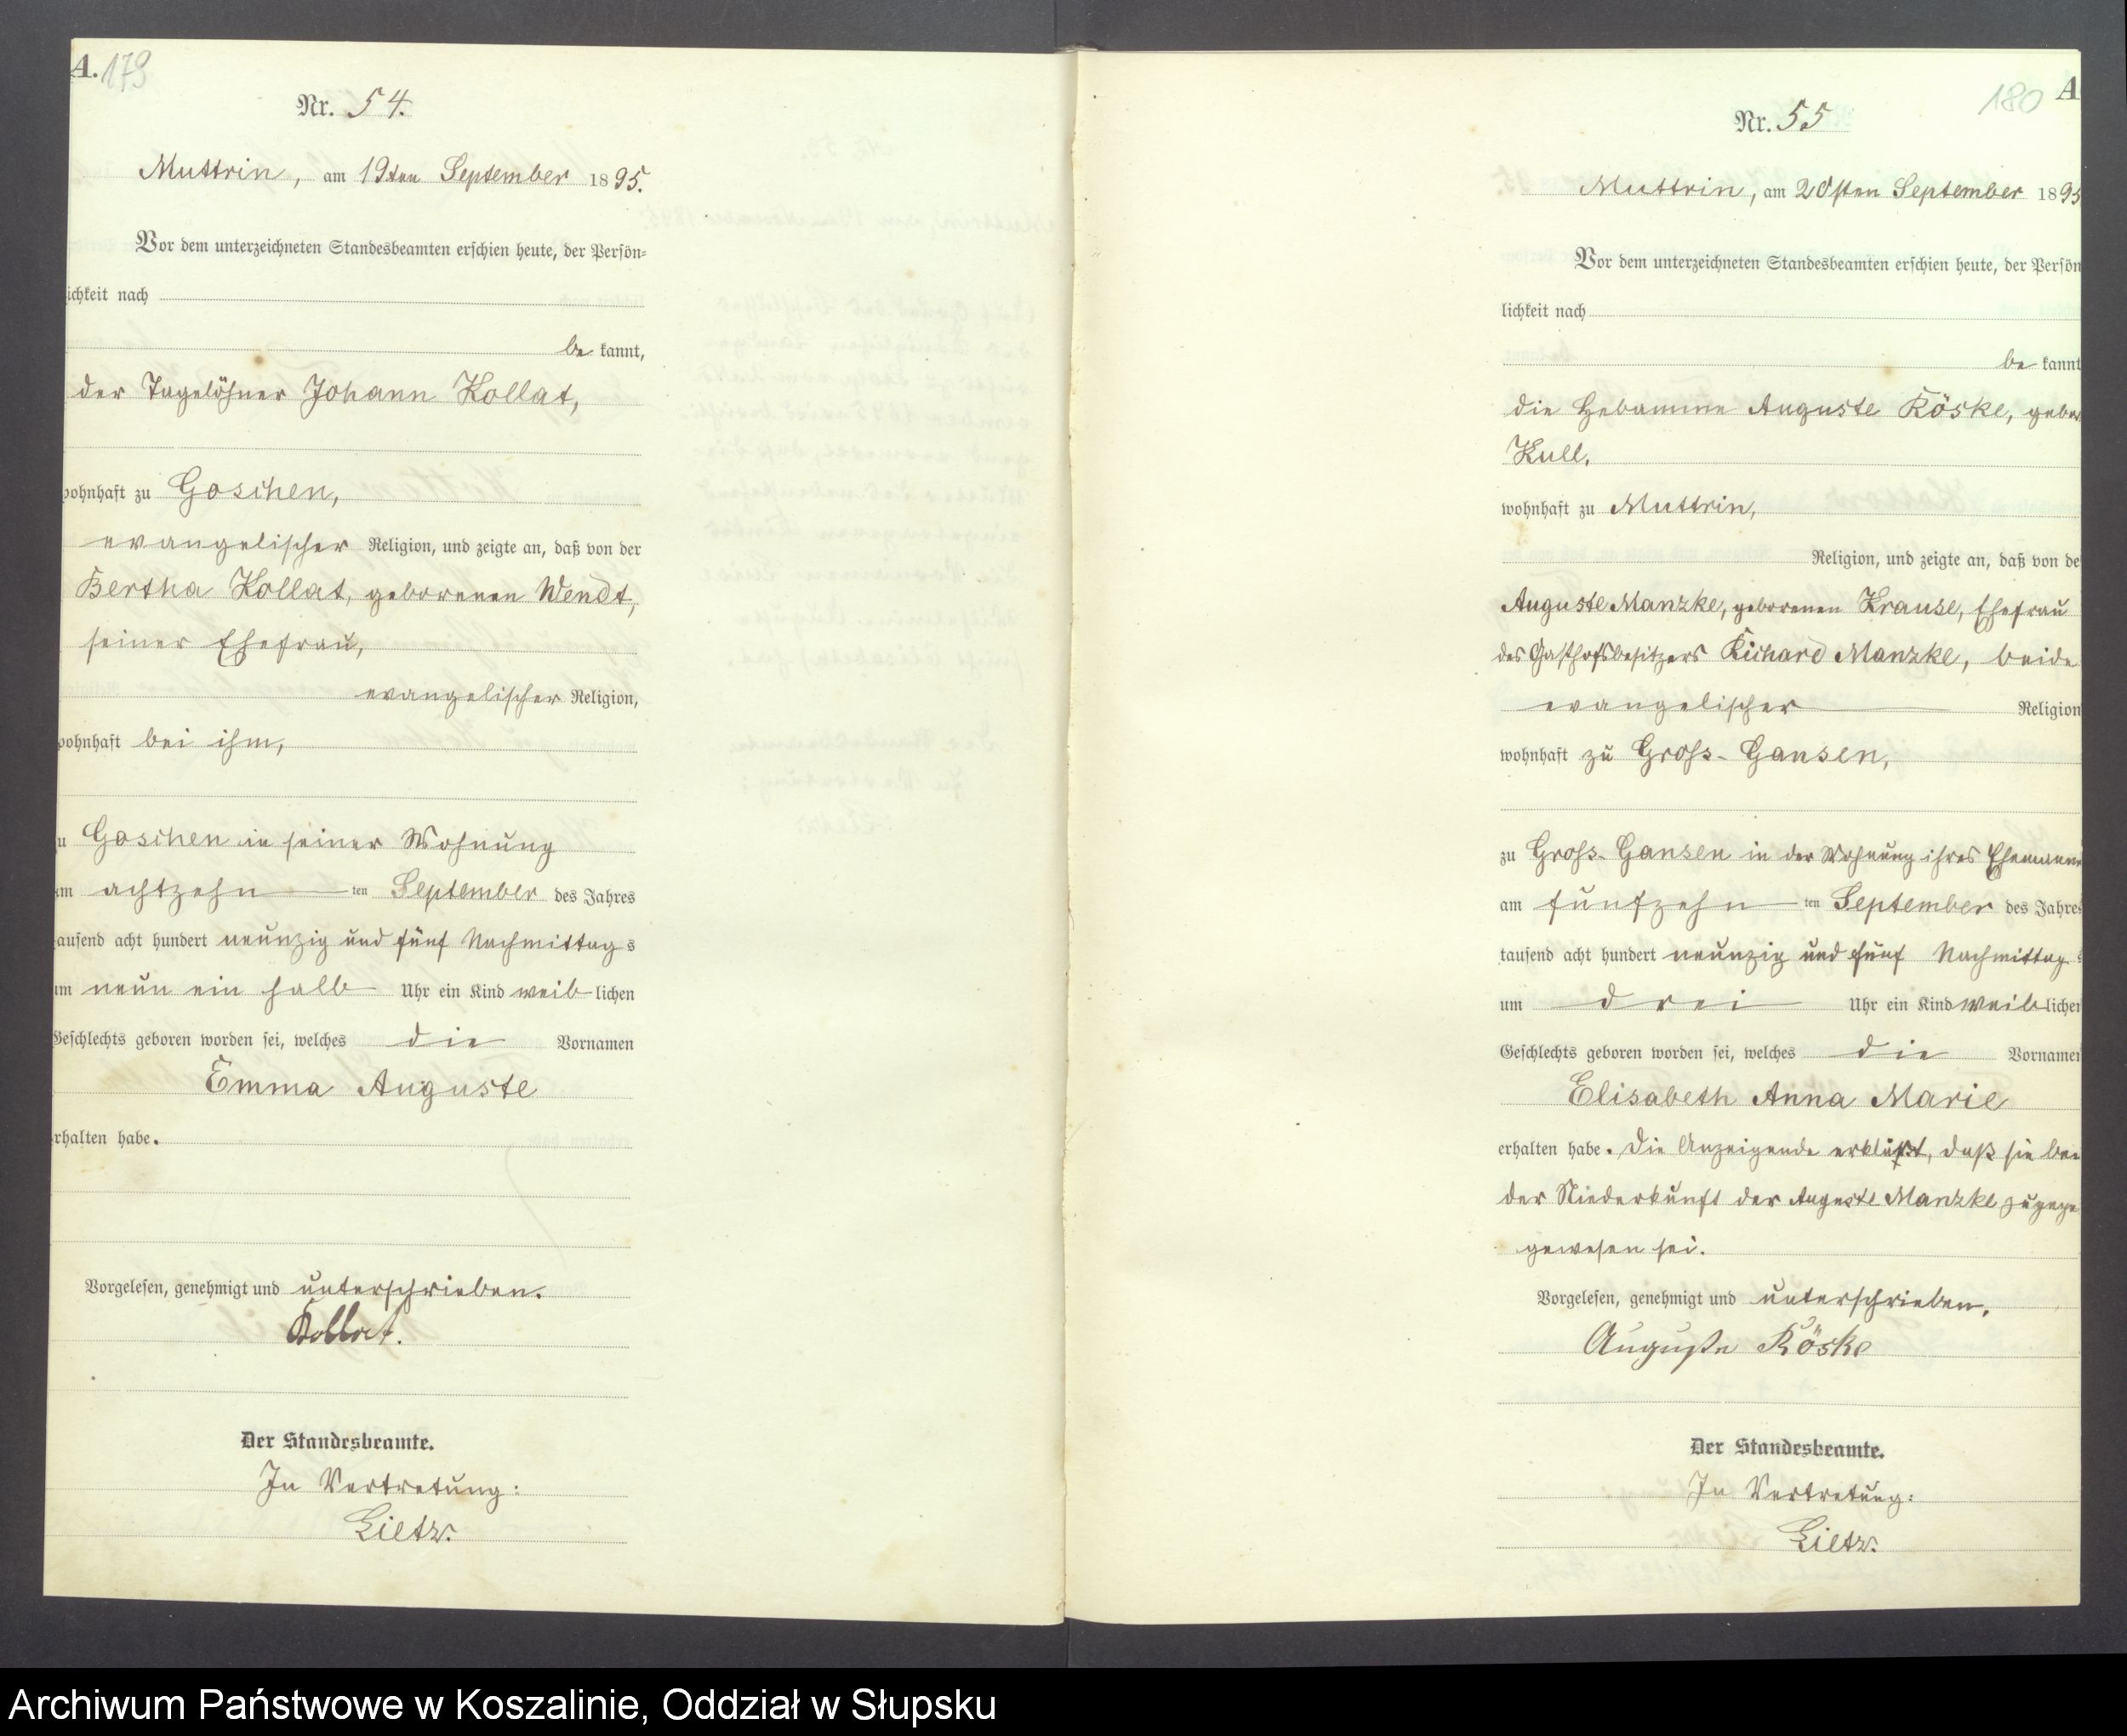 A. 179
Nr. 54.
Muttrin, am 19ten September 1895.
Vor dem unterzeichneten Standesbeamten erschien heute, der Persön-
ichkeit nach
be kannt,
der Tagelöhner Johann Kollat,
wohnhaft zu Goschen,
evangelischer Religion, und zeigte an, daß von der
Bertha Kollat, geborenen Wendt,
seiner Ehefrau,
evangelischer Religion,
wohnhaft bei ihm,
u Goschen in seiner Wohnung
am achtzehn ten September des Jahres
tausend acht hundert neunzig und fünf Nachmittags
um neun ein halb Uhr ein Kind weiblichen
Geschlechts geboren worden sei, welches die Vornamen
Emma Auguste
rhalten habe.
Vorgelesen, genehmigt und unterschrieben.
Kollat.
Der Standesbeamte.
In Vertretung:
Lietz.
180 A
Nr. 55
Muttrin, am 20sten September 1895
Vor dem unterzeichneten Standesbeamten erschien heute, der Persön
lichkeit nach
be kannt
die Hebamme Auguste Röske, gebor
Kull,
wohnhaft zu Muttrin,
Religion, und zeigte an, daß von de
Auguste Manzke, geborenen Krause, Ehefrau
des Gasthofsbesitzers Richard Manzke, beide
evangelischer Religion
wohnhaft zu Gross-Gansen,
zu Gross-Gansen in der Wohnung ihres Ehemanne
am fünfzehn ten September des Jahres
tausend acht hundert neunzig und fünf Nachmittags
um drei Uhr ein Kind weiblichen
Geschlechts geboren worden sei, welches die Vornamen
Elisabeth Anna Marie
erhalten habe. Die Anzeigende erklärt, daß sie bei
der Niederkunft der Auguste Manzke zugege
gewesen sei.
Vorgelesen, genehmigt und unterschrieben.
Auguste Röske
Der Standesbeamte.
In Vertretung:
Lietz.
Archiwum Państwowe w Koszalinie, Oddział w Słupsku